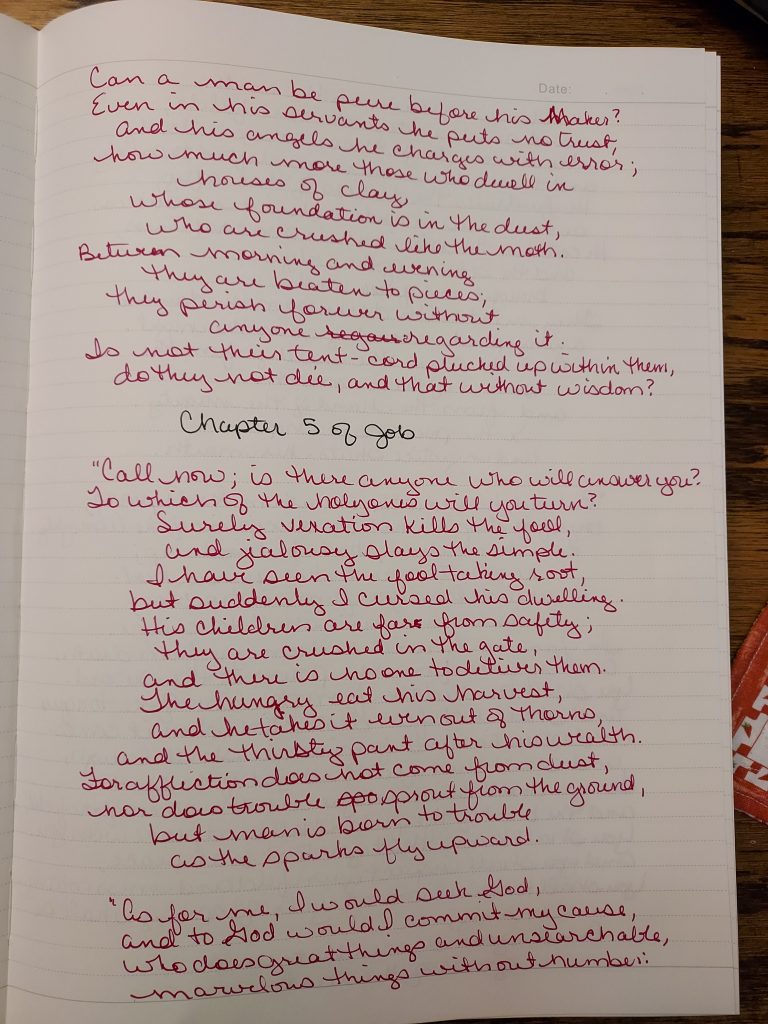 Date:
Can a man be pure before his Maker?
Even in his servants he puts no trust,
and his angels he charges with error;
how much more those who dwell in
houses of clay,
whose foundation is in the dust,
who are crushed like the moth.
Between morning and evening
they are beaten to pieces;
they perish forever without
anyone regar regarding it.
Is not their tent-cord plucked up within them,
do they not die, and that without wisdom?
Chapter 5 of Job
"Call now; is there anyone who will answer you?
To which of the holy ones will you turn?
Surely vexation kills the fool,
and jealousy slays the simple.
I have seen the fool taking root,
but suddenly I cursed his dwelling.
His children are far from safety;
they are crushed in the gate,
and there is no one to deliver them.
The hungry eat his harvest,
and he takes it even out of thorns,
and the thirsty pant after his wealth.
For affliction does not come from dust,
nor does trouble spo sprout from the ground,
but man is born to trouble
as the sparks fly upward.
"As for me, I would seek God,
and to God would I commit my cause,
who does great things and unsearchable,
marvelous things without number: